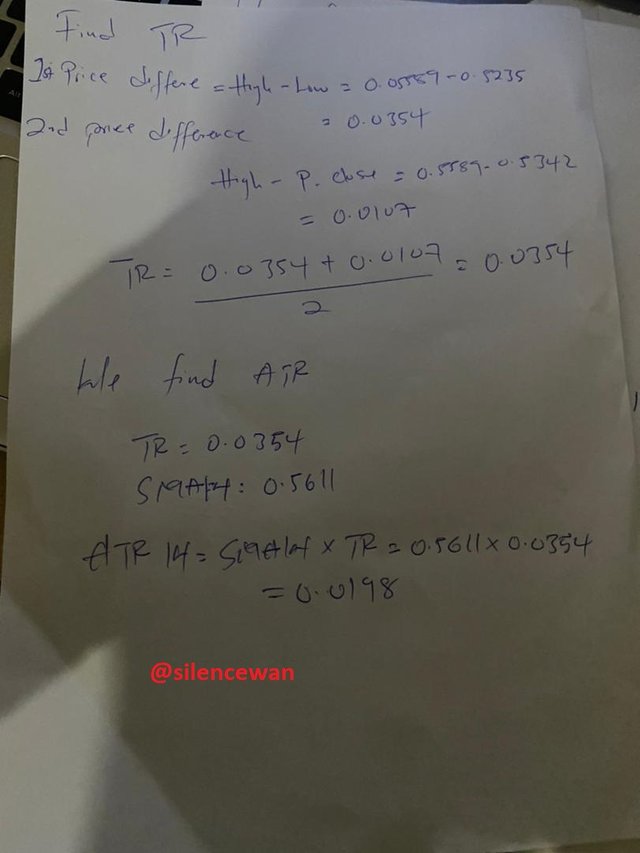 Find TR
1st Price differe = High - Low = 0.05589 - 0.5235
2nd price difference = 0.0354
High - P. close = 0.5589 - 0.5342
= 0.0107
TR = 0.0354 + 0.0107 = 0.0354
2
We find ATR
TR = 0.0354
: 0.5611
ATR 14 = x TR = 0.5611 x 0.0354
= 0.0198
@silencewan